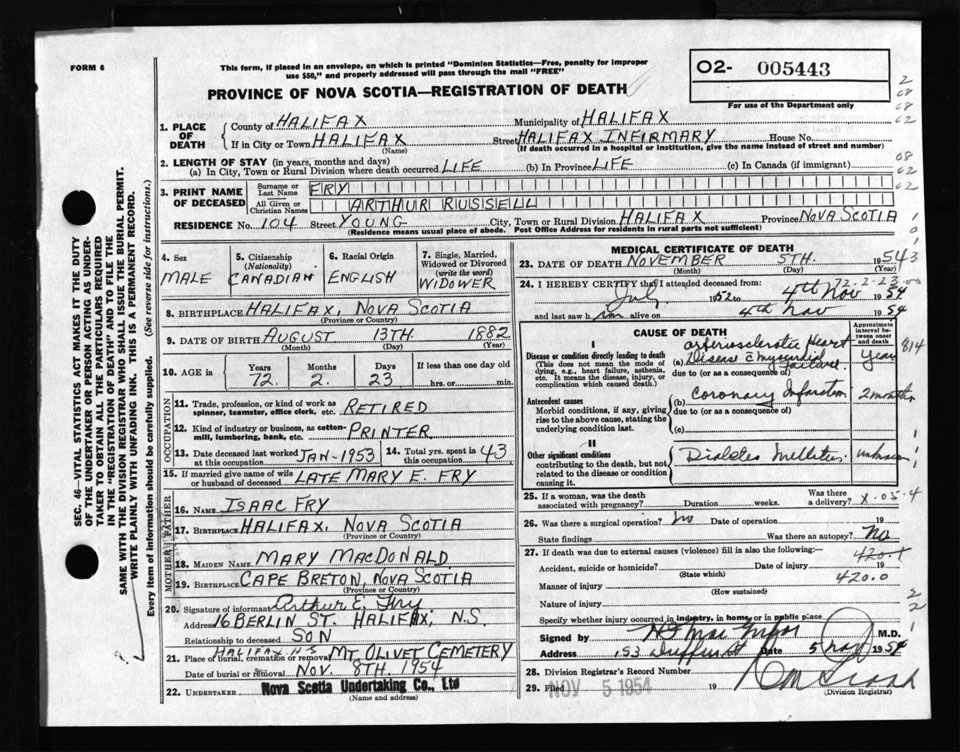 FORM 6
This form, if placed in an envelope, on which is printed "Dominion Statistics—Free, penalty for improper
use $50," and properly addressed will pass through the mail "FREE"
O2- 005443
For use of the Department only
PROVINCE OF NOVA SCOTIA—REGISTRATION OF DEATH
2
68
68
62
08
62
62
SEC. 46—VITAL STATISTICS ACT MAKES IT THE DUTY
OF THE UNDERTAKER OR PERSON ACTING AS UNDER-
TAKER TO OBTAIN ALL THE PARTICULARS REQUIRED
IN THE "REGISTRATION OF DEATH" AND TO FILE THE
SAME WITH THE DIVISION REGISTRAR WHO SHALL ISSUE THE BURIAL PERMIT.
WRITE PLAINLY WITH UNFADING INK. THIS IS A PERMANENT RECORD.
Every item of information should be carefully supplied. (See reverse side for instructions.)
1. PLACE OF DEATH
County of HALIFAX Municipality of HALIFAX
If in City or Town HALIFAX Street HALIFAX INFIRMARY House No.
(Name) (If death occurred in a hospital or institution, give the name instead of street and number)
2. LENGTH OF STAY (in years, months and days)
(a) In City, Town or Rural Division where death occurred LIFE (b) In Province LIFE (c) In Canada (if immigrant)
3. PRINT NAME OF DECEASED
Surname or Last Name FRY
All Given or Christian Names ARTHUR RUSSELL
RESIDENCE No. 104 Street YOUNG City, Town or Rural Division HALIFAX Province NOVA SCOTIA
(Residence means usual place of abode. Post Office Address for residents in rural parts not sufficient)
4. Sex MALE
5. Citizenship (Nationality) CANADIAN
6. Racial Origin ENGLISH
7. Single, Married, Widowed or Divorced (write the word) WIDOWER
8. BIRTHPLACE HALIFAX, NOVA SCOTIA
(Province or Country)
9. DATE OF BIRTH AUGUST 13TH. 1882
(Month) (Day) (Year)
10. AGE in Years Months Days If less than one day old
72. 2. 23 hrs. or min.
OCCUPATION
11. Trade, profession, or kind of work as spinner, teamster, office clerk, etc. RETIRED
12. Kind of industry or business, as cotton-mill, lumbering, bank, etc. PRINTER
13. Date deceased last worked at this occupation JAN-1953
14. Total yrs. spent in this occupation 43
15. If married give name of wife or husband of deceased LATE MARY E. FRY
FATHER
16. Name ISAAC FRY
17. Birthplace HALIFAX, NOVA SCOTIA
(Province or Country)
MOTHER
18. MAIDEN NAME MARY MACDONALD
19. BIRTHPLACE CAPE BRETON, NOVA SCOTIA
(Province or Country)
20. Signature of informant Arthur E. Fry
Address 16 BERLIN ST. HALIFAX, N.S.
Relationship to deceased SON
21. Place of burial, cremation or removal HALIFAX N.S MT OLIVET CEMETERY
Date of burial or removal NOV. 8TH. 1954
22. UNDERTAKER Nova Scotia Undertaking Co., Ltd
MEDICAL CERTIFICATE OF DEATH
23. DATE OF DEATH NOVEMBER 5TH. 1954
(Month) (Day) (Year)
24. I HEREBY CERTIFY that I attended deceased from: 72.2.23
July 1952 to 4th Nov 1954
and last saw him alive on 4th Nov 1954
CAUSE OF DEATH
Approximate interval between onset and death
I
Disease or condition directly leading to death
(This does not mean the mode of dying, e.g., heart failure, asthenia, etc. It means the disease, injury, or complication which caused death.)
(a) arteriosclerotic Heart Disease c myocardial failure. years 814
due to (or as a consequence of)
Antecedent causes
Morbid conditions, if any, giving rise to the above cause, stating the underlying condition last.
(b) Coronary Infarction 2 months
due to (or as a consequence of)
(c)
II
Other significant conditions
contributing to the death, but not related to the disease or condition causing it.
Diabetes Mellitus unknown
25. If a woman, was the death associated with pregnancy? Duration weeks. Was there a delivery? X.05.4
26. Was there a surgical operation? no Date of operation 19
State findings Was there an autopsy? No
27. If death was due to external causes (violence) fill in also the following:— 420.1
Accident, suicide or homicide? Date of injury 19
(State which) 420.0
Manner of injury
(How sustained)
Nature of injury
Specify whether injury occurred in industry, in home, or in public place
Signed by M.D.
Address 153 Date 5 Nov 1954
28. Division Registrar's Record Number
29. Filed NOV 5 1954 19
(Division Registrar)